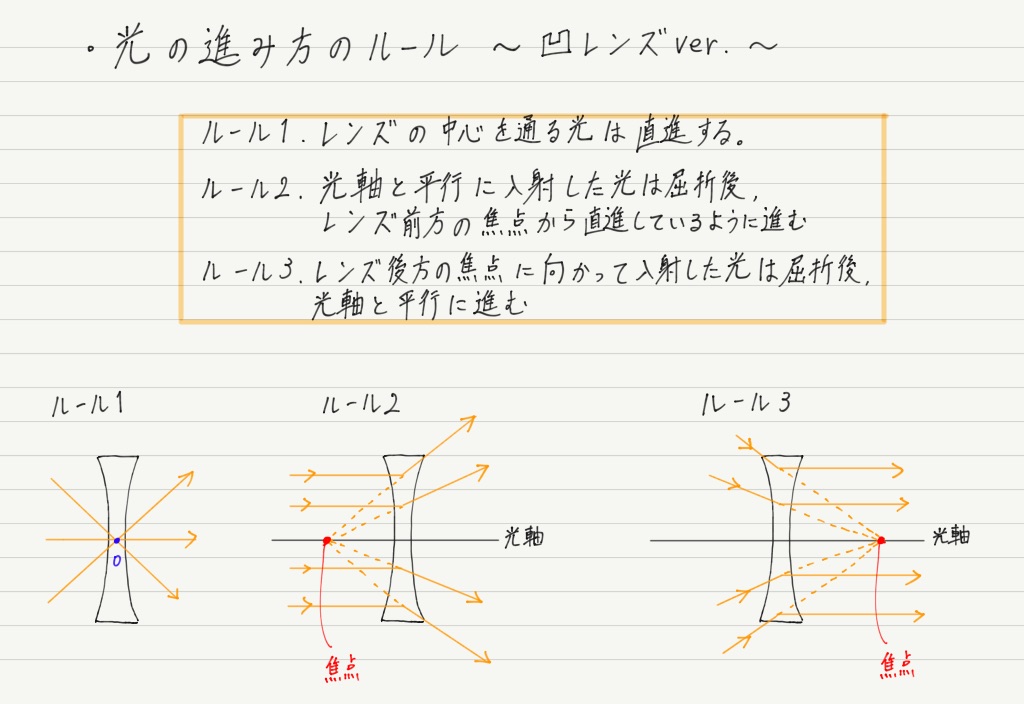 ・光の進み方のルール ～ 凹レンズver. ～
ルール1. レンズの中心を通る光は直進する。
ルール2. 光軸と平行に入射した光は屈折後,
レンズ前方の焦点から直進しているように進む
ルール3. レンズ後方の焦点に向かって入射した光は屈折後,
光軸と平行に進む
ルール1
ルール2
ルール3
O
光軸
光軸
焦点
焦点